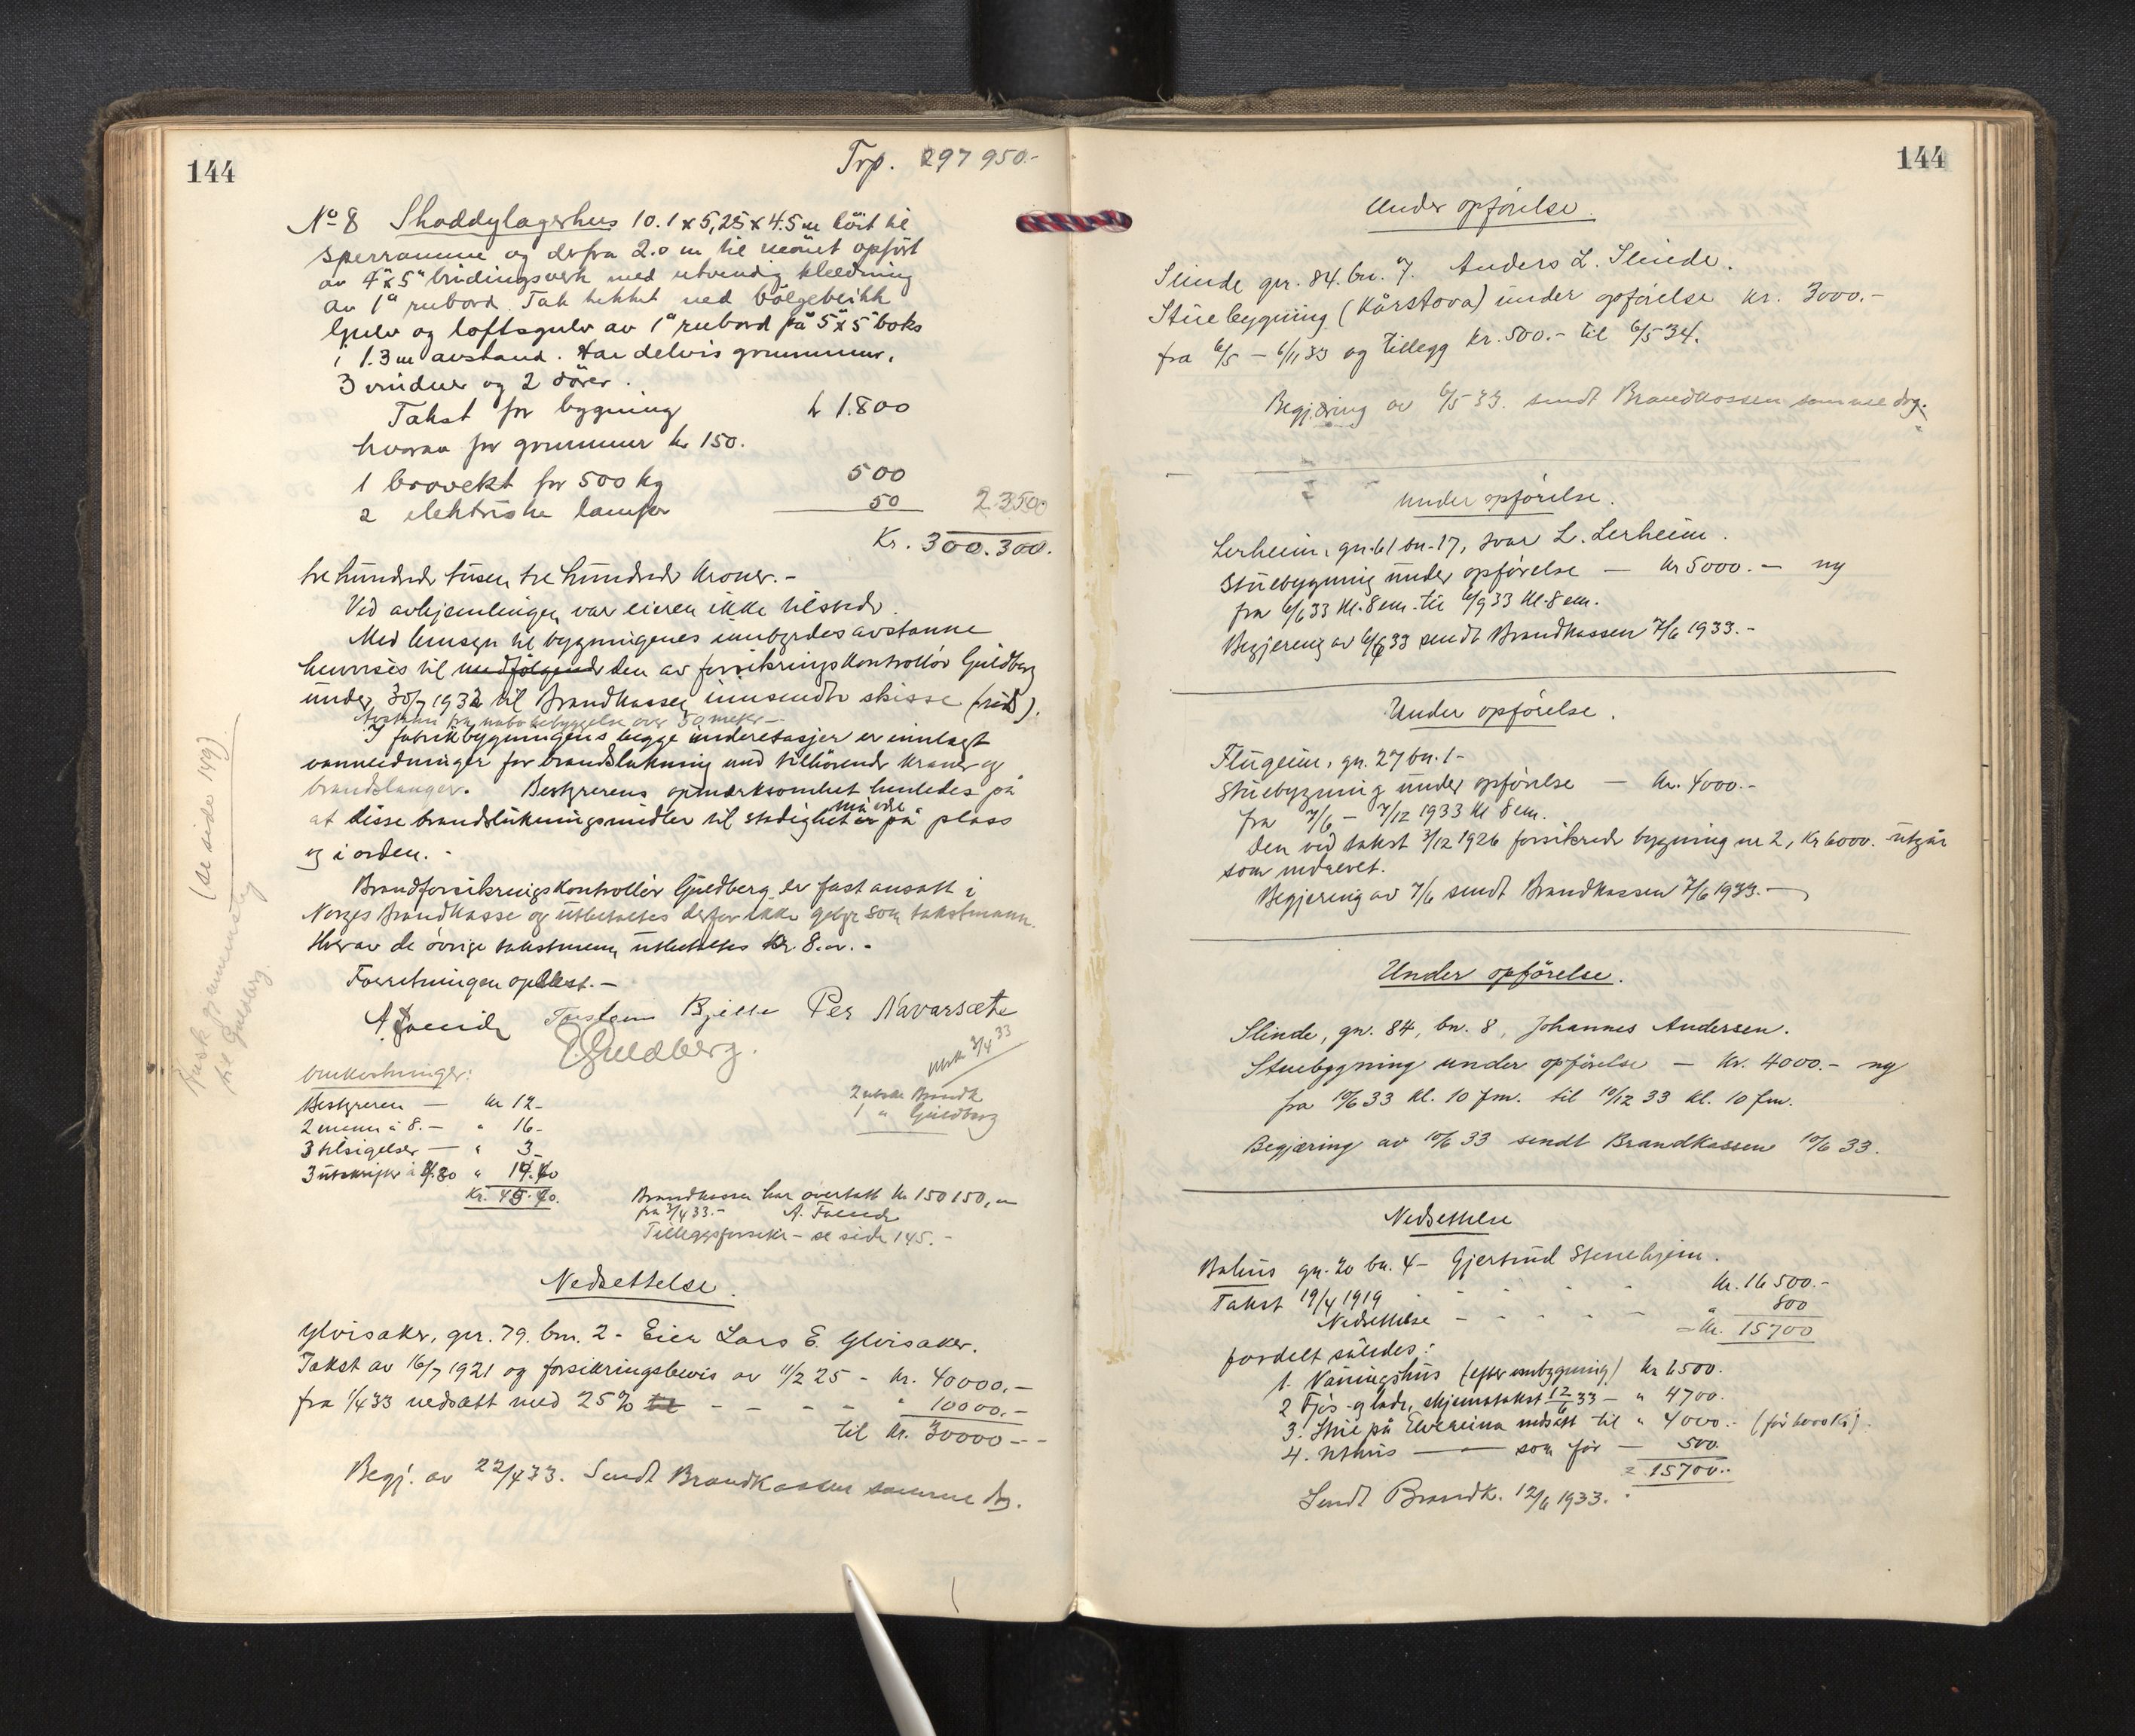 144
Trp. 297 950.-
No 8 Shoddylagerhus 10.1 x 5,25 x 4.5 m höit til
sperramme og derfra 2.0 m til mönet opfört
av 4" x 5" bindingsverk med utvendig klædning
av 1" rubord. Tak tekket med bölgeblikk
Gulv og loftsgulv av 1" rubord på 5" x 5" boks
i 1.3 m avstand. Har delvis grunnmur,
3 vinduer og 2 dörer.
Takst for bygning kr 1.800
hvorav for grunnmur kr 150.
1 brovekt for 500 kg 500
2 elektriske lamper 50 2 350
Kr. 300.300.
tre hundrede tusen tre hundrede kroner.-
Ved avhjemlingen var eieren ikke tilstede.
Med hensyn til bygningenes innbyrdes avstanne
henvises til medfölgende den av forsikringskontrollör Guldberg
under 30/7 1932 til Brandkassen innsendte skisse
Avstann fra nabobebyggelse over 50 meter -
I fabrikbygningens begge underetasjer er innlagt
vannledninger for brandslukning med tilhörende kraner og
brandslanger. Bestyrerens opmerksomhet henledes på
at disse brandslukningsmidler til stadighet må være på plass
og i orden. -
Brandforsikringskontrollör Guldberg er fast ansatt i
Norges Brandkasse og utbetales derfor ikke gebyr som takstmann.
Hver av de övrige takstmenn utbetales kr. 8.00.-
Forretningen oplest.-
Torstein Bjelle Per Navarsete
Guldberg.
Omkostninger:
Bestyreren — kr 12.-
2 menn à 8.- " 16.-
3 tilsigelser — " 3.-
3 utskrifter à
Utsk 3/4 33
2 utskr. Brandk
1 " Guldberg
Brandkassen har overtatt kr 150 150,00
fra 3/4 33.-
Tilleggsforsikr - se side 145.-
(se side 149)
til Guldberg.
Nedsettelse.
Ylvisaker, gnr. 79. bnr. 2 - Eier Lars E. Ylvisaker.
Takst av 16/7 1921 og forsikringsbevis av 11/2 25 - kr. 40000.-
fra 1/4 33 nedsatt med 25% til - - - - " 10000.-
til kr. 30000 - -
Begj. av 22/4 33. Sendt Brandkassen samme dag.
144
Under opförelse.
Slinde gnr. 84. bn. 7. Anders L. Slinde.
Stuebygning (Kårstova) under opförelse kr. 3000.-
fra 6/5 - 6/11 33 og tillegg kr. 500.- til 6/5 34.
Begjæring av 6/5 33. sendt Brandkassen samme dag.
Under opförelse.
Lerheim, gn. 61 bn. 17, Ivar L. Lerheim.
Stuebygning under opförelse — kr 5000.- ny
fra 6/6 33 kl. 8 em. til 6/9 33 kl. 8 em.
Begjering av 6/6 33 sendt Brandkassen 7/6 1933.-
Under opförelse.
Flugeim, gn. 27 bn. 1-
Stuebygning under opförelse — kr. 4000.-
fra 7/6 - 7/12 1933 kl 8 em.
Den ved takst 3/12 1926 forsikrede bygning nr 2, kr 6000. utgår
som nedrevet.
Begjering av 7/6 sendt Brandkassen 7/6 1933.-
Under opförelse.
Slinde, gn. 84, bn. 8, Johannes Andersen.
Stuebygning under opförelse — kr. 4000.- ny
fra 10/6 33 kl. 10 fm. til 10/12 33 kl. 10 fm.
Begjæring av 10/6 33 sendt Brandkassen 10/6 33.
Nedsettelse
gn. 20 bn. 4 - Gjertrud Stenehjem.
Takst 19/4 1919 - - - kr. 16 500.-
Nedsettelse - - - - " 800
= kr. 15700
fordelt således:
1. Våningshus (efter ombygning) kr 6500.
2 Fjös og lade, skjematakst 12/6 33 — " 4700.
3. Stue på Elvereina nedsatt til " 4000.- (för 6000 kr).
4. Uthus —— som för — 500.
= 15700..
Sendt Brandk. 12/6 1933.